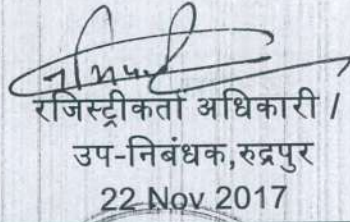 रजिस्ट्रीकर्ता अधिकारी /
उप-निबंधक,रुद्रपुर
22 Nov 2017